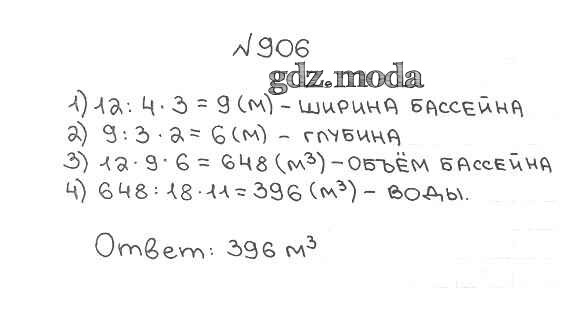 №906
gdz.moda
1) 12 : 4 · 3 = 9 (м) – ШИРИНА БАССЕЙНА
2) 9 : 3 · 2 = 6 (м) – ГЛУБИНА
3) 12 · 9 · 6 = 648 (м³) – ОБЪЁМ БАССЕЙНА
4) 648 : 18 · 11 = 396 (м³) – ВОДЫ.
Ответ: 396 м³